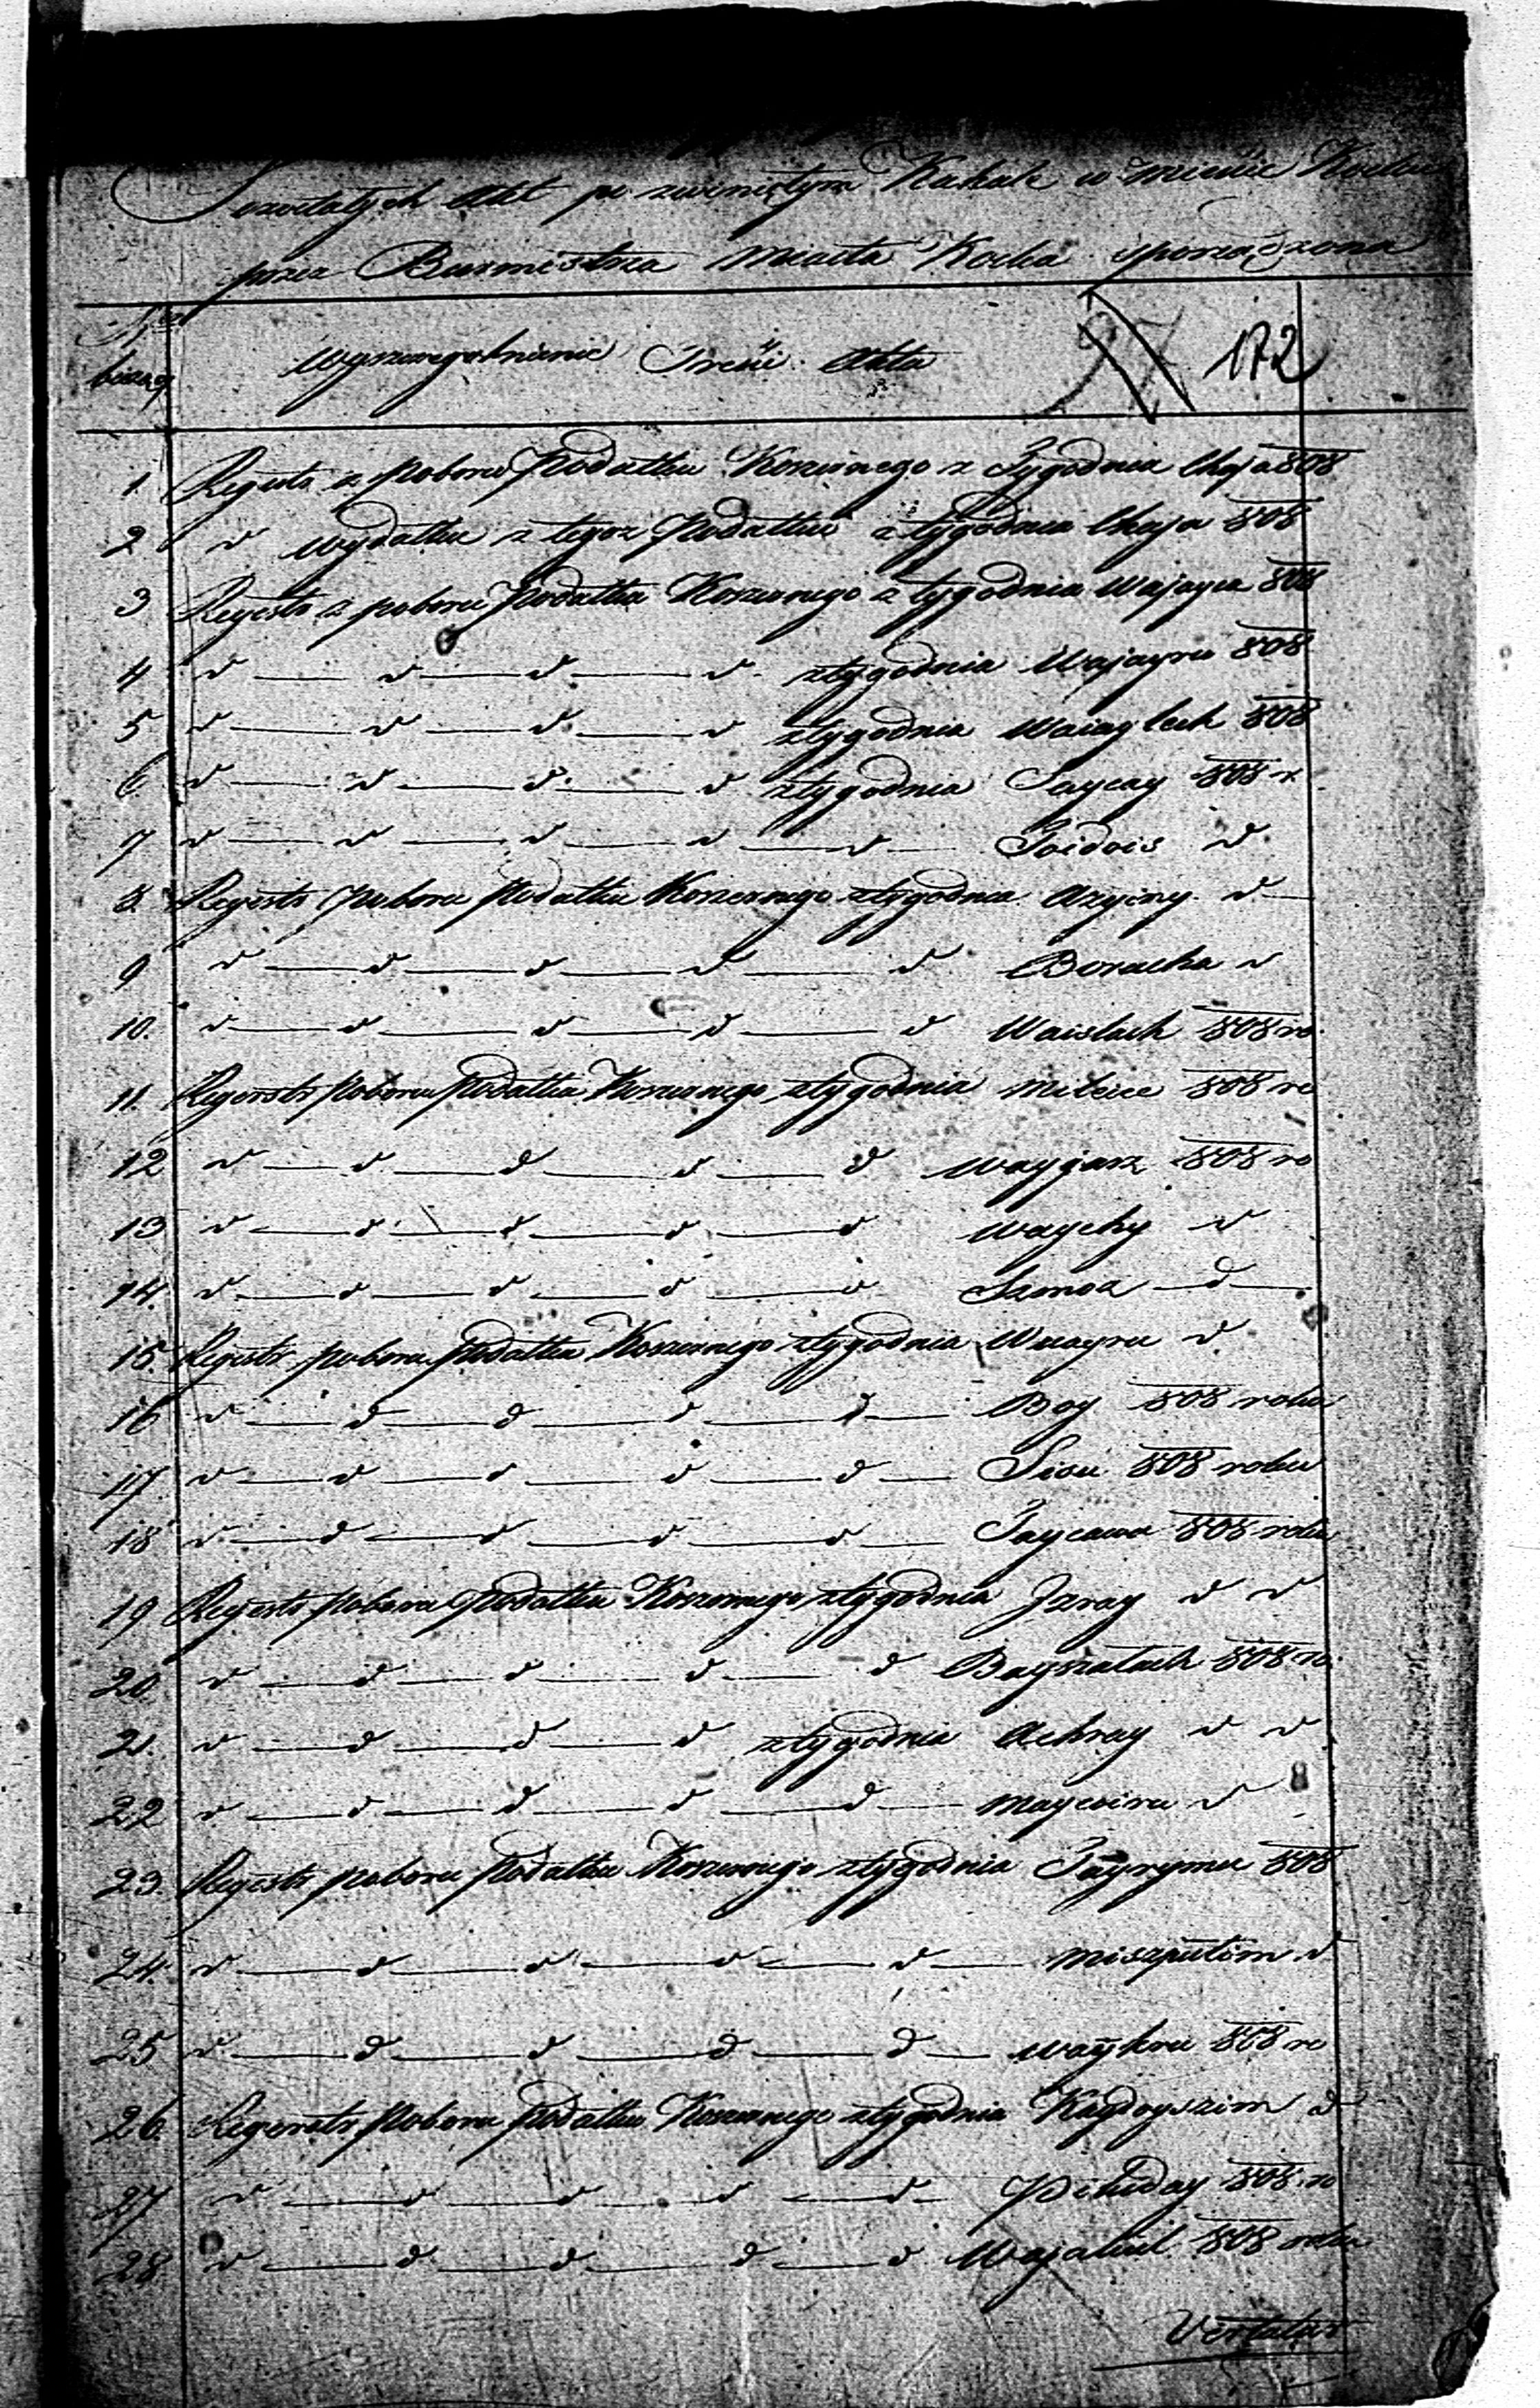 pozostałych Akt po zwiniętym Kahale w mieście Kocku
przez Burmistrza Miasta Kocka sporządzona
N<sup>er</sup> bieżący
Wyszczególnienie Treści Akta
172
1. Regestr z poboru Podatku Koszernego z Tygodnia Chaja 808
2 d Wydatku z tegoz Podatku z tygodnia Chaja 808
3 Regestr z poboru Podatku Koszernego z tygodnia Wajayca 808
4 d — d — d — d ztygodnia Wajayru 808
5 d — d — d — d ztygodnia Waiaglech 808
6 d — d — d — d ztygodnia Saycay 808 r.
7 d — d — d — d — d — Soidois d
8. Regestr poboru Podatku Koszernego ztygodnia Azyiny d —
9 d — d — d — d — d Beracha d
10. d — d — d — d — d Waislach 808 ro
11. Regerstr Poboru Podatku Koszernego ztygodnia Mekeice 808 ro
12 d — d — d — d — d Waygasz 808 ro
13 d — d — d — d — d Waychy d
14. d — d — d — d — d Szmoz — d —
15. Regestr poboru Podatku Koszernego ztygodnia Wuayru d
16 d — d — d — d — d — Boy 808 roku
17 d — d — d — d — d — Sisu 808 roku
18 d — d — d — d — d — Taycawa 808 roku
19 Regestr Poboru Podatku Koszernego ztygodnia Jzray d d
20 d — d — d — d — d Bayszalach 808 ro
21. d — d — d — d ztygodnia Achray d d
22 d — d — d — d — d — Maycoiru d
23. Regestr poboru Podatku Koszernego ztygodnia Tayrymu 808
24. d — d — d — d — d — Miszputim d
25 d — d — d — d — d — Waykru 808 ro
26. Regerstr Poboru Podatku Koszernego ztygodnia Kaydoyszim d
27 d — d — d — d — d — Pikuday 808 ro
28 d — d — d — d — d Wajakiel 808 roku
Vertatur